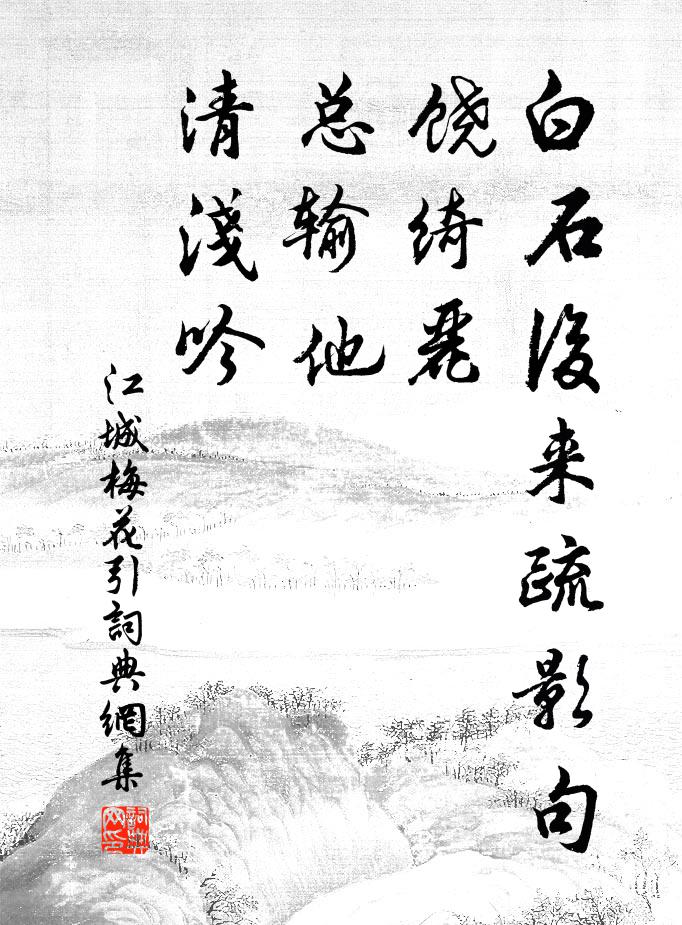 白石後来疏影句
饶绮麗
总输他
清淺吟
江城梅花引詞典網集